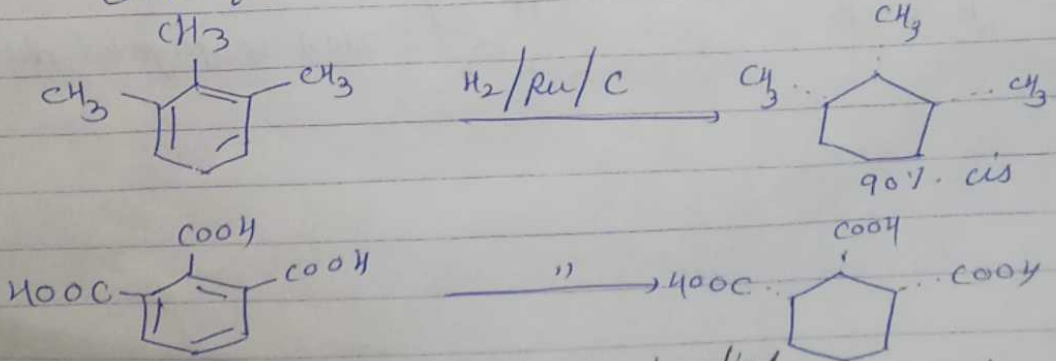 CH3
CH3
CH3
H2/Ru/C
CH3
CH3
CH3
90% cis
COOH
HOOC
COOH
"
COOH
HOOC
COOH